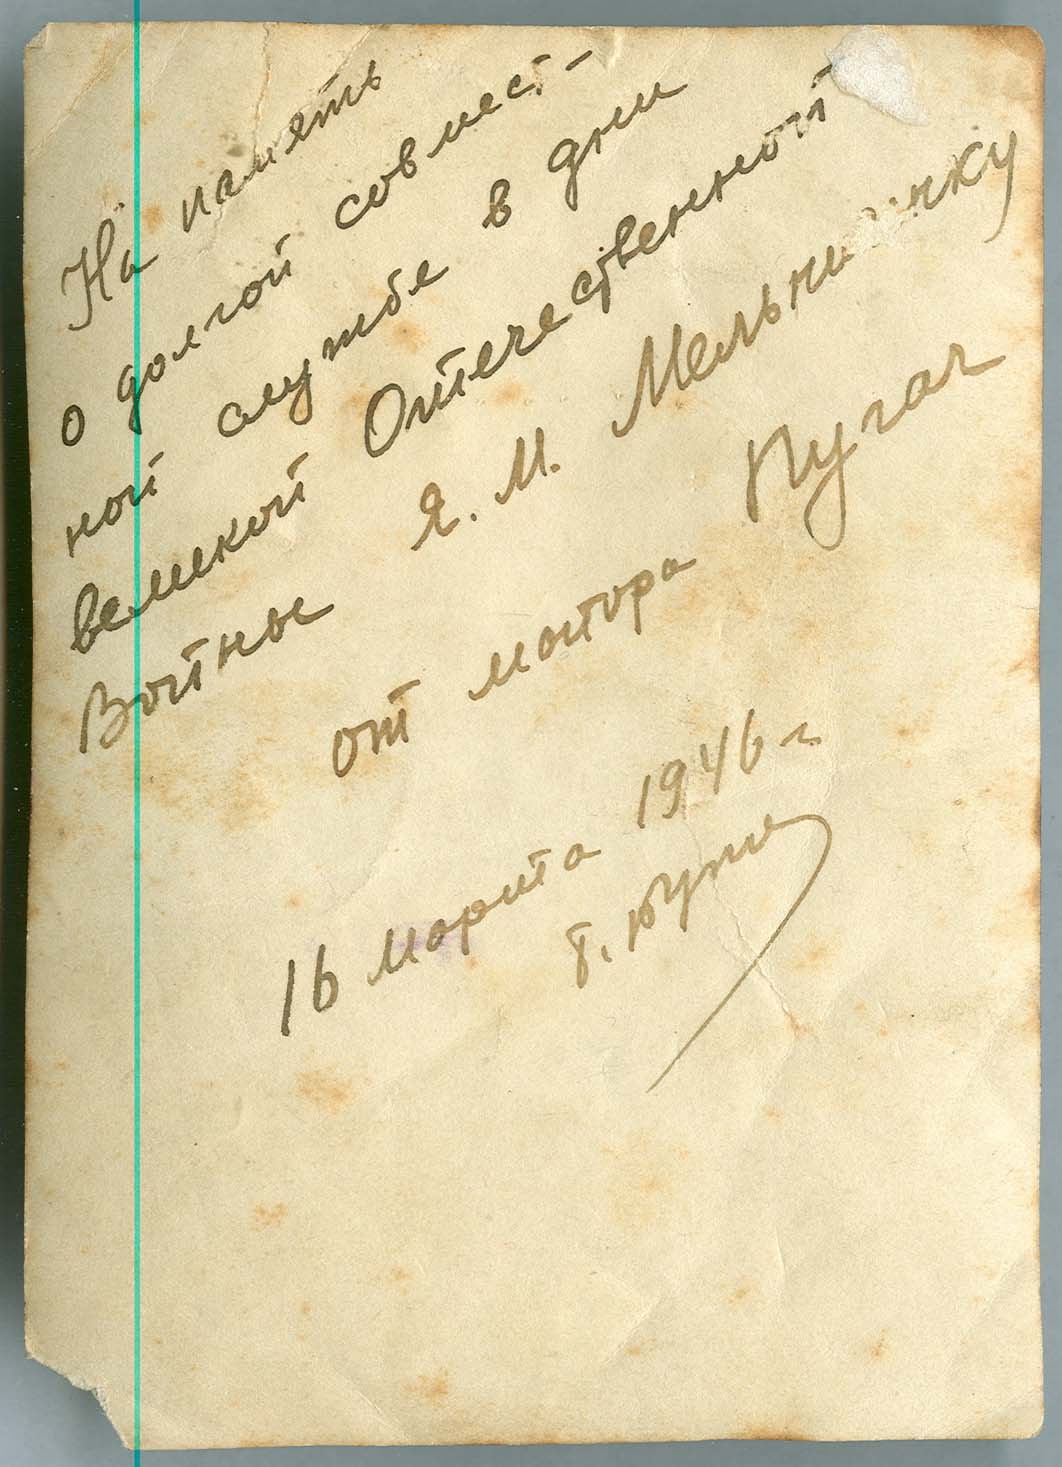 На память
о долгой совмест-
ной службе в дни
великой Отечественной
Войны Я. М. Мельничуку
от майора Пугач
16 марта 1946 г.